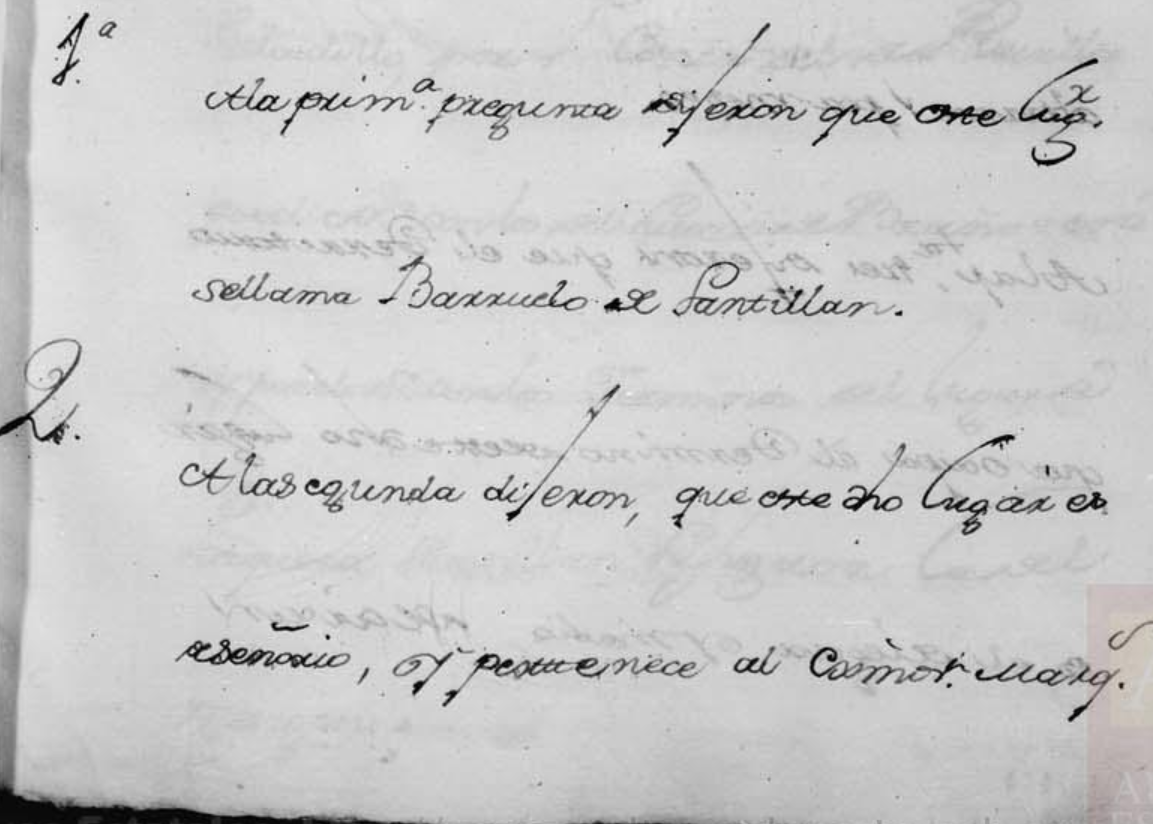 1.ª
Ala prim.ª pregunta dijeron que este Lug.r
sellama Barruelo de Santillan.
2.
Alasegunda dijeron, que este dho Lugar es
deseñorio, y pertenece al Exsmor. Marq.s